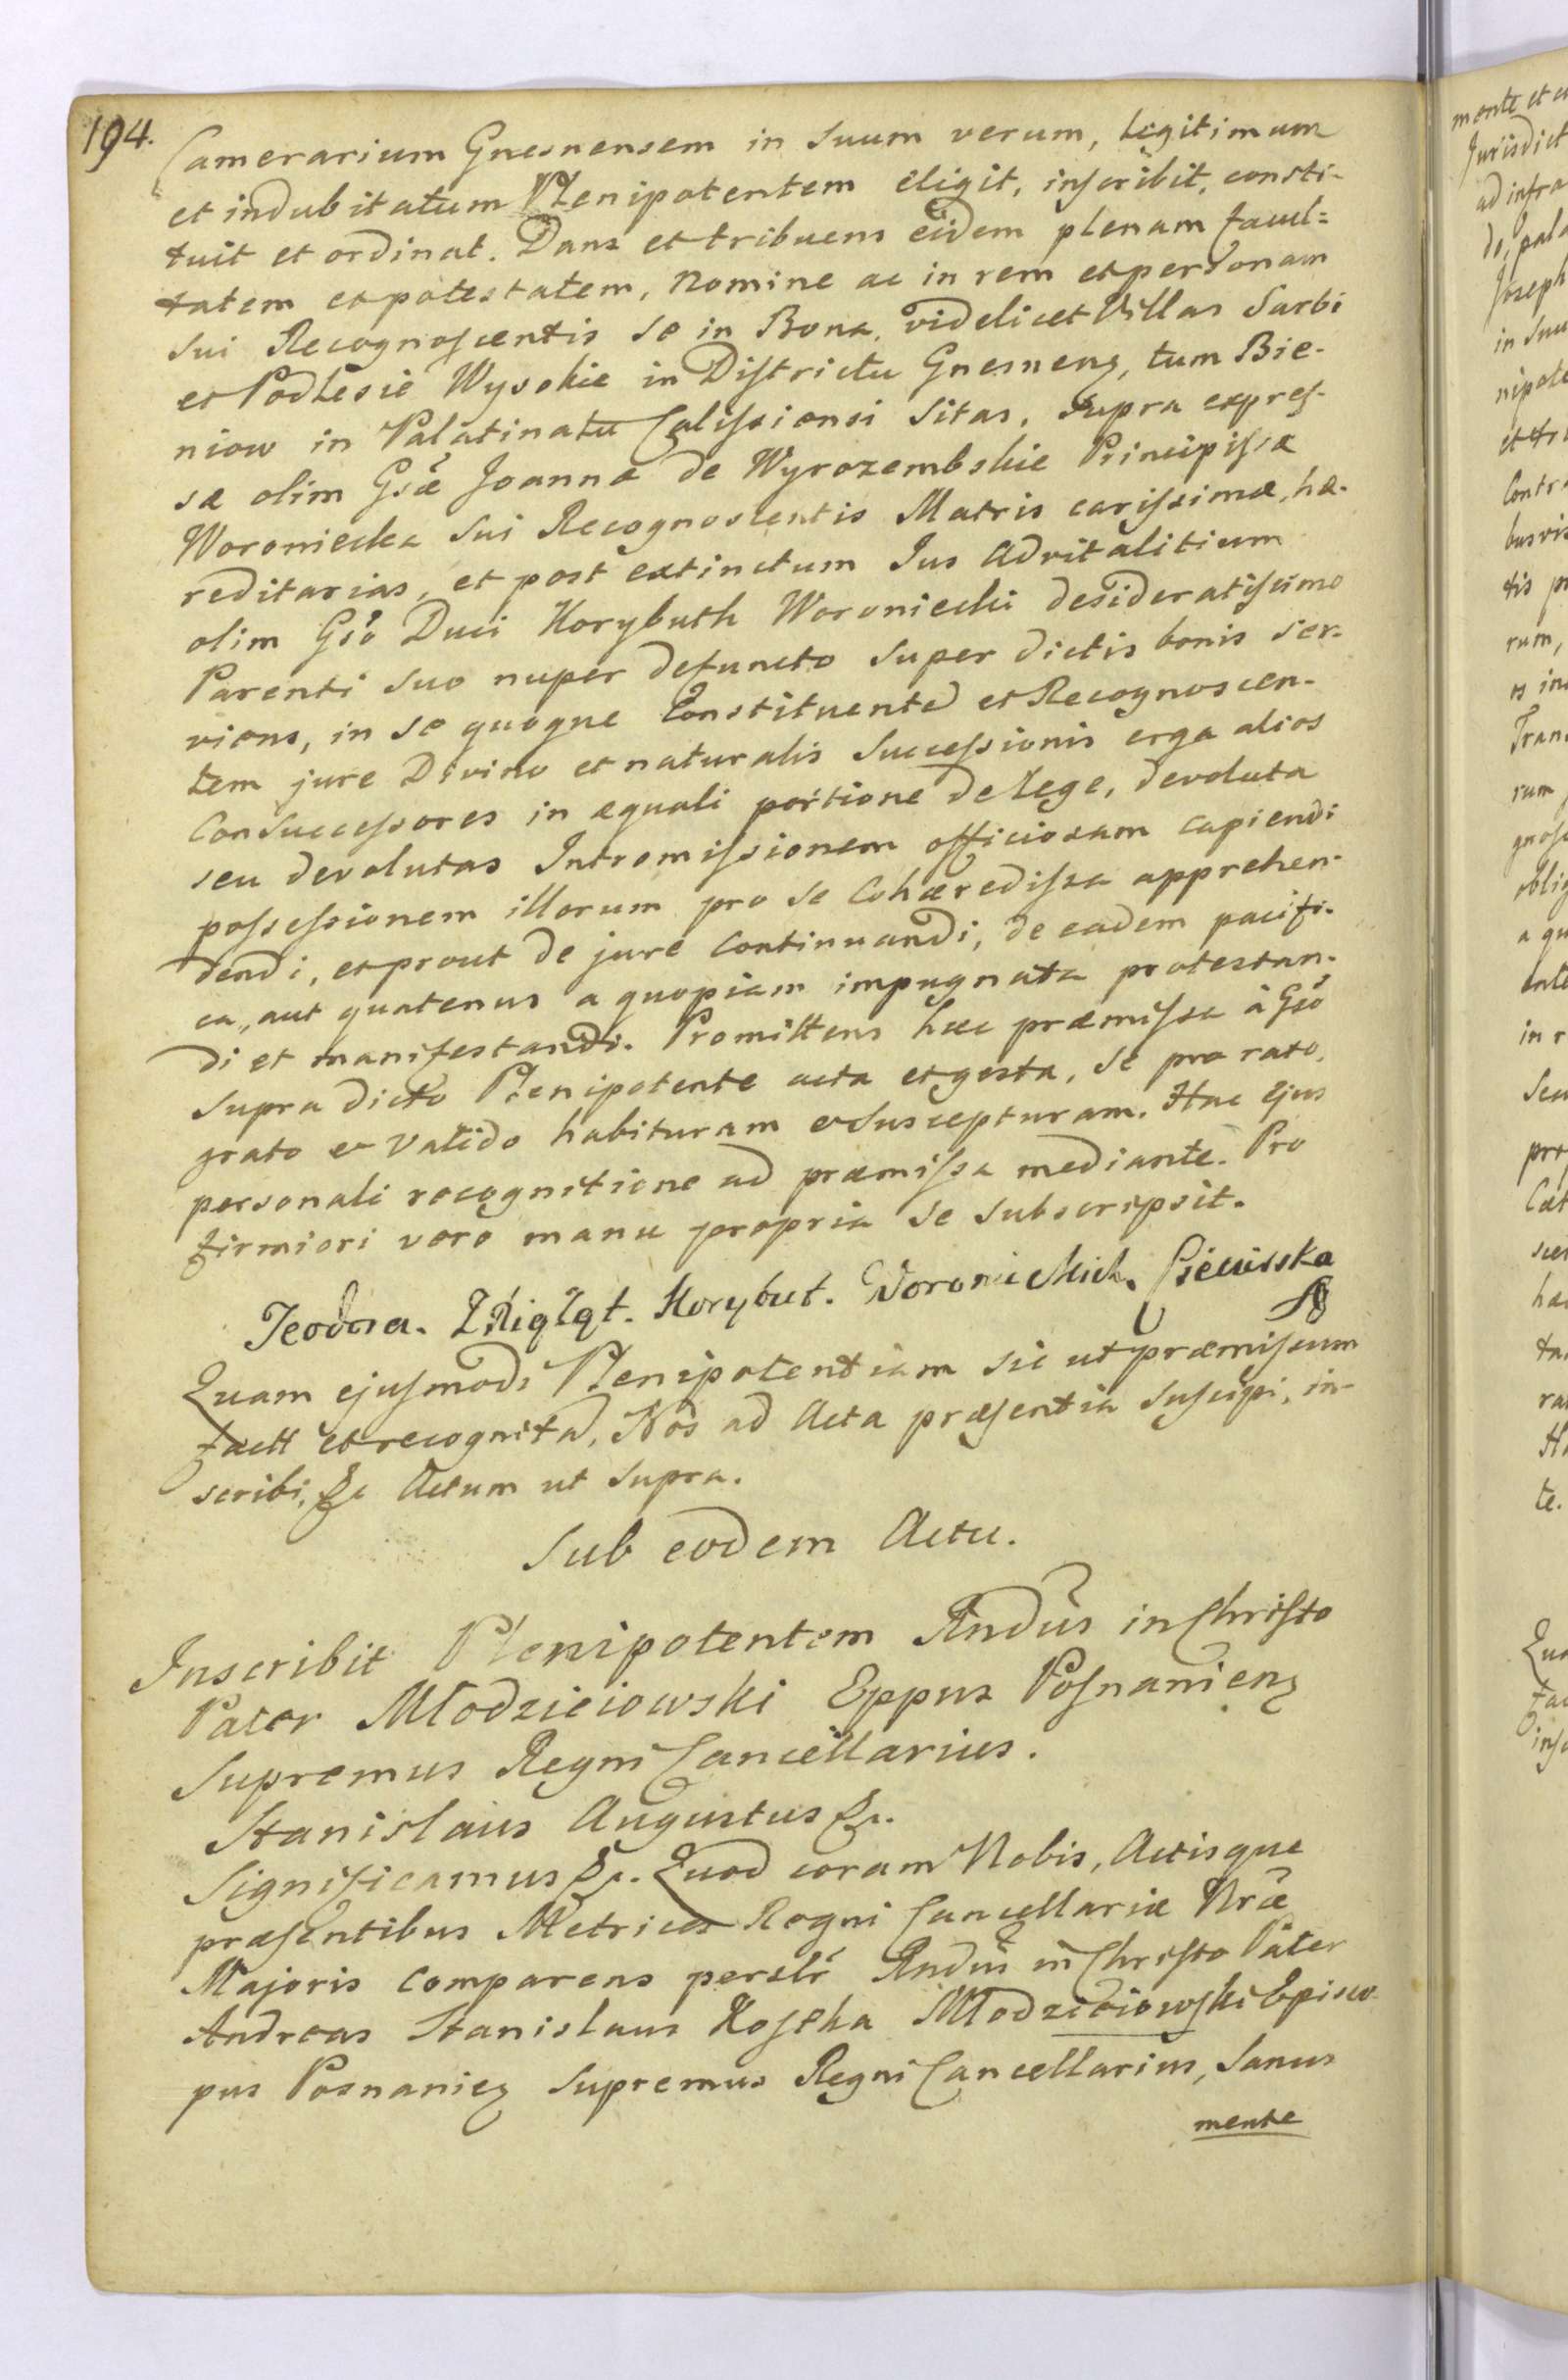 194.
Camerarium Gnesnensem in Suum verum, legitimum
et indubitatum Plenipotentem eligit, inscribit, consti-
tuit et ordinat. Dans et tribuens eidem plenam facul=
tatem et potestatem, Nomine ac in rem et personam
sui Recognoscentis se in Bona, videlicet Villas Sarbi
et Podlesie Wysokie in Districtu Gnesnens, tum Bie-
niow in Palatinatu Calissiensi Sitas, Supra expres-
sæ olim Gsæ Joannæ de Wyrozembskie Principissæ
Woroniecka Sui Recognoscentis Matris carissimæ, hæ-
reditarias, et post extinctum Jus Advitalitium
olim Gso Duci Korybuth Woroniecki desideratissimo
Parenti suo nuper defuncto Super dictis bonis ser-
viens, in se quoque Constituente et Recognoscen-
tem jure Divino et naturalis Successionis erga alios
Consuccessores in æquali portione de lege, devoluta
seu devolutas Intromissionem officiosam capiendi
possessionem illorum pro se Cohæredissa apprehen-
dendi, et prout de jure continuandi, de eadem pacifi-
ca, aut quatenus a quopiam impugnata protestan-
di et manifestandi. Promittens hæc præmissa à Gso
Supra dicto Plenipotente acta et gesta, se pro rato,
grato et Valido habituram et Suscepturam. Hac Ejus
personali recognitione ad præmissa mediante. Pro
firmiori vero manu propria se Subscripsit.
Teodora. Korybut.
Quam ejusmodi Plenipotentiam sic ut præmissum
factt et recognita, Nos ad Acta præsentia Suscipi, in-
scribi, &c Actum ut Supra.
Sub eodem Actu.
Inscribit Plenipotentem Rndus in Christo
Pater Młodzieiowski Eppus Posnaniens
Supremus Regni Cancellarius.
Stanislaus Augustus &c.
Significamus &c. Quod coram Nobis, Actisque
præsentibus Metrices Regni Cancellariæ Nræ
Majoris Comparens persłr Rndus in Christo Pater
Andreas Stanislaus Kostka Młodzieiowski Episco-
pus Posnaniens Supremus Regni Cancellarius, Sanus
mente